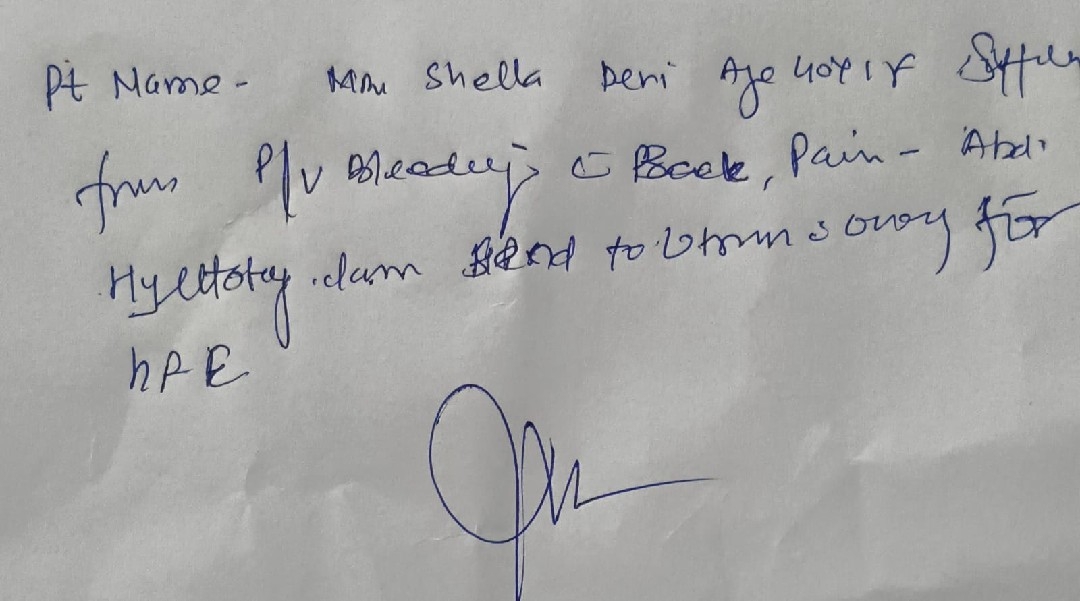 Pt Name - Mrs Shella Devi Age 40Y/F Suffer
from P/v Bleeding c̄ Back, Pain - Abd.
Hyectotey. dam Send to Utrus & ovary for
hPE